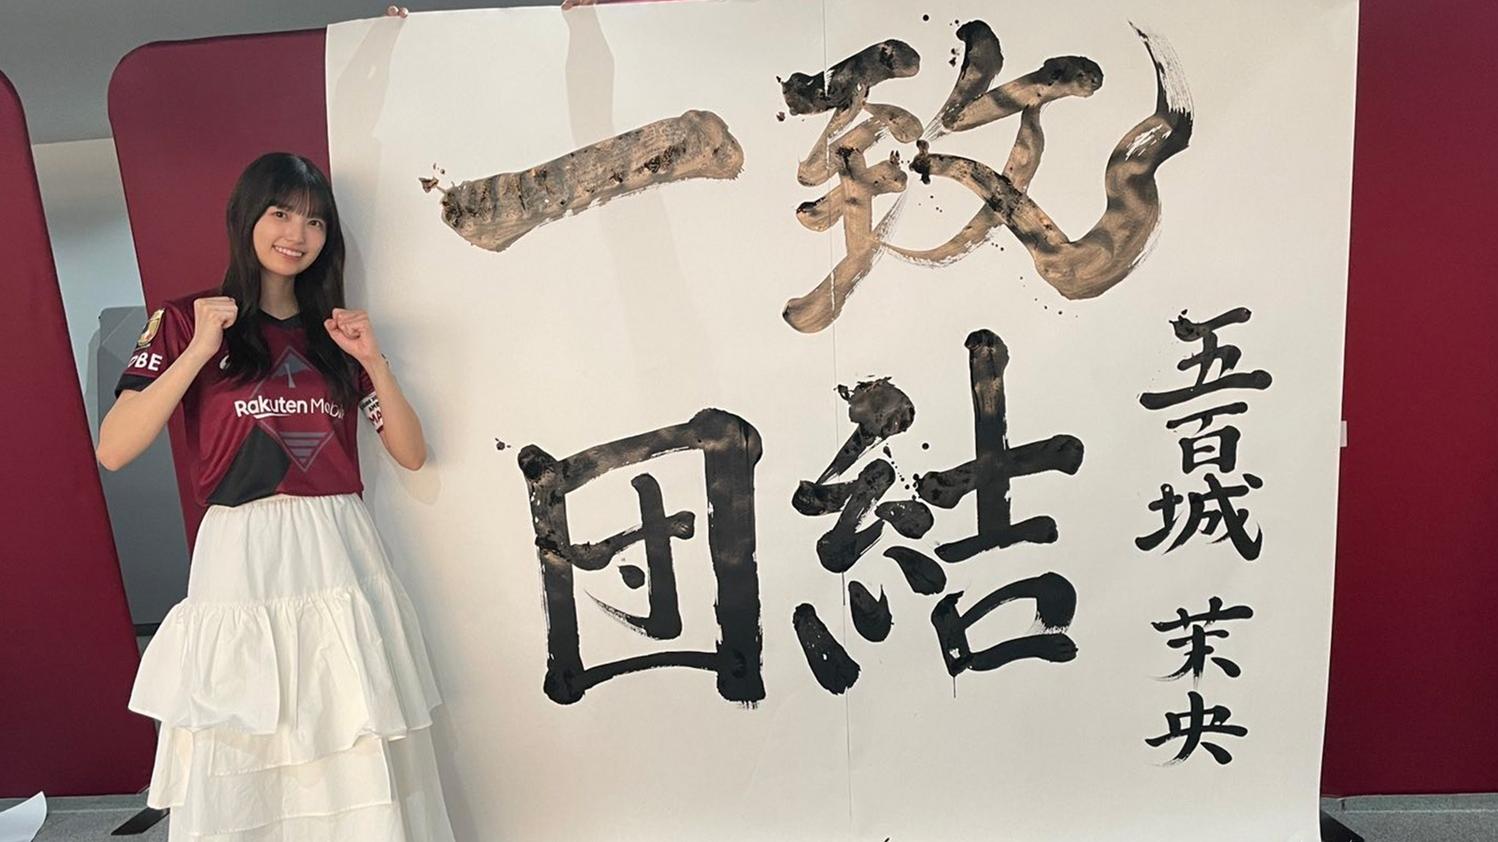 一致
団結
五百城 茉央
Rakuten Mobile
OBE